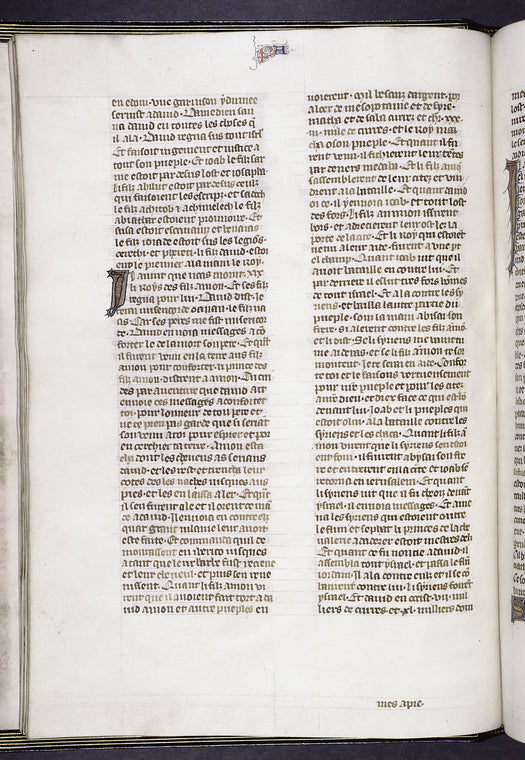 en edom · vne garnison ydumee
seruist a dauid · Damedieu sau
ua dauid en toutes les choses q̃
il ala · Dauid regna sus tout isrl̃
Et faisoit iugement et iustice a
tout son pueple · Et ioab le filz sar
uie estoit par desus lost et iosapha
li filz ahiluth estoit par desus ceulz
qui faisoient les escriptz · et sadoch
le filz achitob et achimelech le filz
abiathar estoient prouuoire · Et
susa estoit escriuain et banaias
le filz ioiade estoit sus les legions
cerethi · et phereti · li filz dauid · estoiẽt
enz le premier a la main le roy ·
Il auint que naas morut · xix
li roys des filz amon · Et ses filz
regna pour lui · Dauid dist · ie
ferai misericorde o anan · le filz na
as Car ses peres me fist misericor
de · Dauid enuoia messages a cõ
forter le de la mort son pere · Et quãt
il furent venu en la terre aus filz
amon pour conforter · li prince des
filz amon · distrent a amon · Cuidi
es par auenture que dauid ait
enuoie ces messages a conforter
toi · pour lonneur de ton pere et
ne te pren pas garde que si seriãt
sont venu a toi pour espier et por
en cerchier ta terre · Amon esta
cha dont les cheueus as serians
dauid · et les rest et trencha leur
cotes des les naches iusques aus
piez · et les en laissa aler · Et quãt
il sen furent ale et il orent ce mã
de a dauid · Il enuoia en contre elz
quar grant uilanie leur auoit
este faite · Et commanda quil de
mourassent en ierico iusques
a tant que leur barbe fust creue
et leur cheueul · et puis sen reue
nissent · Quant li filz amon vi
rent que il auoient fait tort a da
uid amon et autre pueples en
uoierent · mil besanz dargent · por
aloer de mesopotamie et de syre ·
macha et de saba curres et cheu · xxx
ii · mile de curres · et le roy maa
cha o son pueple · Et quant il fu
rent venu · il ficherent leur tentes
par deuers medaba · Et li filz amõ
sassemblerent de leur citez et vin
drent a la bataille · Et quant dauid
oi ce · il y enuoia ioab · et tout lost
des fors · Li filz amon issirent
hors · et adrecierent leur ost lez la
porte de la cite · Et li roy qui estoiẽt
uenu a leur aide · furent a une pt̃
el champ · Quant ioab uit que il
auoit bataille en contre lui · Et
par derriere il eslut tres fors homes
de tout israel · Et ala contre les sy
riens · et bailla lautre partie du
pueple · souz la main abisai son
frere · si alerent contre les filz amõ
et li dist · Se li syriens me vaintẽ
me aideras · et se li filz amon te sor
montent · ie te serai en aide · Confor
te toi et le faisons vertueusement
pour nostre pueple et pour les citez
nostre dieu · et diex face ce qui est bõ
deuant lui · Ioab et li pueples qui
estoit o lui · ala bataille contre les
syriens et les chaca · Quant li filz a
mon virent que li syriens sen estoiẽt
enfoui · il fuirent abysai son fre
re et entrerent en la cite et ioab se
retorna en ierusalem · Et quant
li syriens uit que il fu cheoiz deuãt
ysrael · il enuoia messages · Et ame
na les syriens qui estoient outre
le flum et sophat li princes de la che
ualerie adadezer estoit mestres delz
Et quant ce fu noncie a dauid · il
assembla tout ysrael · et passa le flũ
iordain · Il ala contre eulz et il se cõ
batirent contre lui · li syriens fouirẽt
ysrael · Et dauid en occist · vii · mil
liers de curres · et · xl · milliers dom
mes apie ·